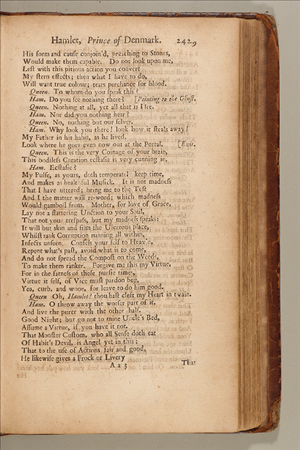 Hamlet, Prince of Denmark. 2429
His form and cause conjoin'd, preaching to Stones,
Would make them capable. Do not look upon me,
Lest with this pitious action you convert
My stern effects; then what I have to do,
Will want true colour; tears perchance for blood.
Queen. To whom do you speak this?
Ham. Do you see nothing there? [Pointing to the Ghost.
Queen. Nothing at all, yet all that is I see.
Ham. Nor did you nothing hear?
Queen. No, nothing but our selves.
Ham. Why look you there! look how it steals away!
My Father in his habit, as he lived.
Look where he goes even now out at the Portal. [Exit.
Queen. This is the very Coinage of your brain,
This bodiless Creation ecstasie is very cunning in.
Ham. Ecstasie?
My Pulse, as yours, doth temperately keep time,
And makes as healthful Musick. It is not madness
That I have uttered; bring me to the Test
And I the matter will re-word; which madness
Would gambol from. Mother, for love of Grace,
Lay not a flattering Unction to your Soul,
That not your trespass, but my madness speaks:
It will but skin and film the Ulcerous place,
Whilst rank Corruption running all within,
Infects unseen. Confess your self to Heav'n,
Repent what's past, avoid what is to come,
And do not spread the Compost on the Weeds,
To make them ranker. Forgive me this my Virtue,
For in the fatness of these pursie time,
Virtue it self, of Vice must pardon beg,
Yea, curb, and wooe, for leave to do him good.
Queen Oh, Hamlet! thou hast cleft my Heart in twain.
Ham. O throw away the worser part of it,
And live the purer with the other half.
Good Night; but go not to mine Uncle's Bed,
Assume a Virtue, if you have it not.
That Monster Custom, who all Sense doth eat
Of Habit's Devil, is Angel yet in this;
That to the use of Actions fair and good,
He likewise gives a Frock or Livery
A a 5 That